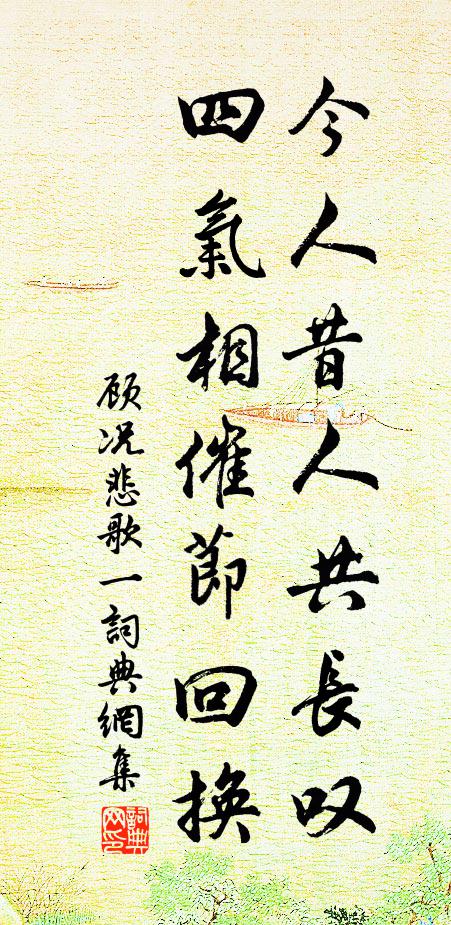 今人昔人共長叹
四氣相催節回换
顾况悲歌一詞典網集
詞典
网印